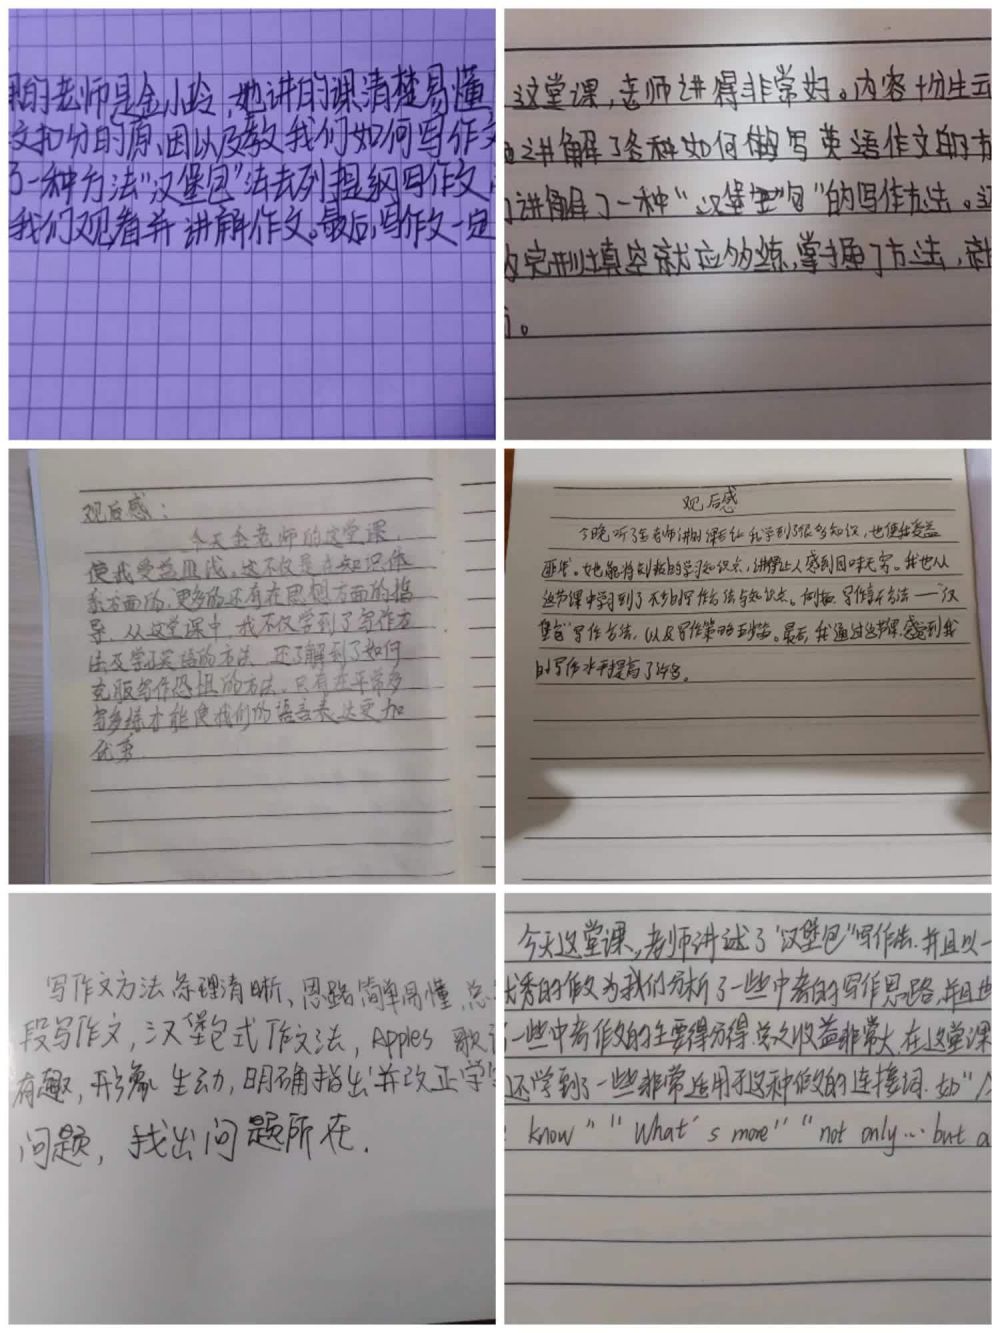 的老师是金小玲,她讲的课清楚易懂
文扣分的原因以及教我们如何写作文
了一种方法“汉堡包”法去列提纲写作文
我们观看并讲解作文。最后,写作文一定
这堂课,老师讲得非常好。内容十分生动
讲解了各种如何做写英语作文的方
讲解了一种“汉堡包”的写作方法。这
的完形填空就应多练,掌握了方法,就
观后感:
今天金老师的这堂课,
使我受益匪浅。这不仅是在知识体
系方面的,更多的还有在思想方面的指
导。从这堂课中,我不仅学到了写作方
法及学习英语的方法,还了解到了如何
克服写作恐惧的方法。只有在平常多
写多练才能使我们的语言表达更加
优秀.
观后感
今晚听了金老师讲的课后让我学到了很多知识,也使我受益
匪浅。她能将的学习知识点,讲得让人感到回味无穷。我也从
这节课中学习到了不少的写作方法与知识点。例如:写作新方法——“汉
堡包”写作方法,以及写作策略五步法。最后,我通过这节课,感觉到我
的写作水平提高了许多。
写作文方法条理清晰、思路简单易懂,总
段写作文,汉堡包式作文法,Apples 歌
有趣,形象生动,明确指出并改正学
问题,找出问题所在.
今天这堂课,老师讲述了“汉堡包”写作法.并且以一
优秀的作文为我们分析了一些中考的写作思路,并且也
一些中考作文的主要得分得.总之收益非常大.在这堂课
还学到了一些非常适用于这种作文的连接词.如“
know” “What's more” “not only… but a